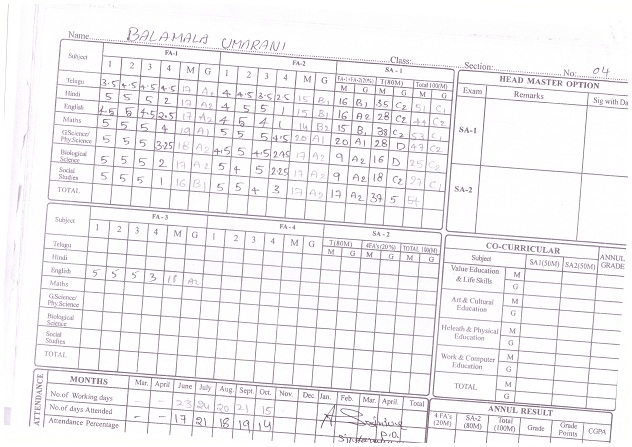 Name BALAMALA UMARANI
Class: Section: No: 04
Subject FA-1 FA-2 SA-1 HEAD MASTER OPTION
1 2 3 4 M G 1 2 3 4 M G FA-1+FA-2(20%) T(80M) Total 100(M) Exam Remarks Sig with Da
M G M G M G
Telugu 3.5 4.5 4.5 4.5 17 A2 4 4.5 3.5 2.5 15 B1 16 B1 35 C2 51 C1
Hindi 5 5 5 2 17 A2 4 5 5 15 B1 16 A2 28 C2 44 C2
English 4.5 5 4.5 2.5 17 A2 4 5 4 1 14 B2 15 B1 38 C2 53 C1
Maths 5 5 5 4 19 A1 5 5 5 4.5 20 A1 20 A1 28 D 47 C2
G.Science/ Phy.Science 5 5 5 3.25 18 A2 4.5 5 4.5 2.75 17 A2 9 A2 16 D 25 C2
Biological Science 5 5 5 2 17 A2 5 4 5 2.25 17 A2 9 A2 18 C2 27 C1
Social Studies 5 5 5 1 16 B1 5 5 4 3 17 A2 17 A2 37 5 54
TOTAL
SA-1
SA-2
Subject FA-3 FA-4 SA-2
1 2 3 4 M G 1 2 3 4 M G T(80M) 4FA's(20%) TOTAL 100(M)
M G M G M G
Telugu
Hindi
English 5 5 5 3 18 A2
Maths
G.Science/ Phy.Science
Biological Science
Social Studies
TOTAL
CO-CURRICULAR
Subject SA1(50M) SA2(50M) ANNUL GRADE
Value Education & Life Skills M G
Art & Cultural Education M G
Heleath & Physical Education M G
Work & Computer Education M G
TOTAL M G
ATTENDANCE
MONTHS Mar. April June July Aug. Sept. Oct. Nov. Dec. Jan. Feb. Mar. April. Total
No.of Working days - - 23 24 20 21 15
No.of days Attended - - 17 21 18 19 14
Attendance Percentage
ANNUL RESULT
4 FA's (20M) SA-2 (80M) Total (100M) Grade Grade Points CGPA